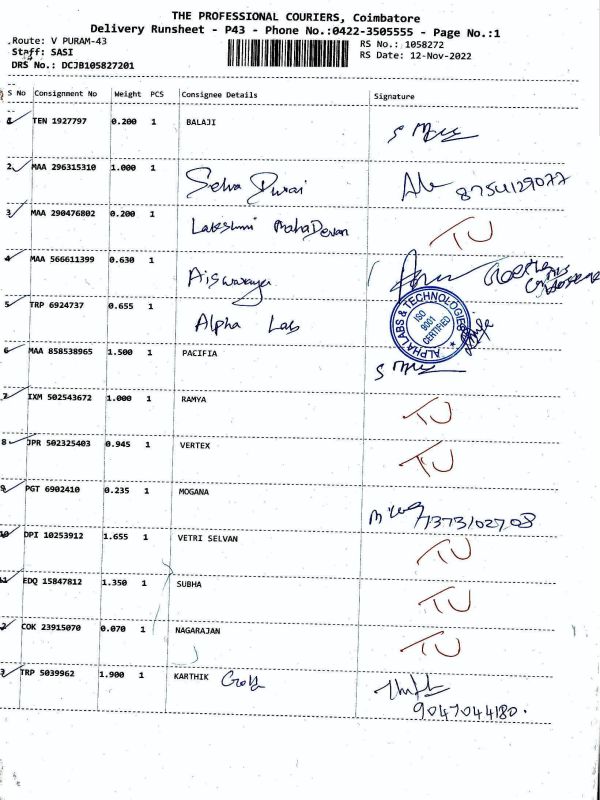 THE PROFESSIONAL COURIERS, Coimbatore
Delivery Runsheet - P43 - Phone No.:0422-3505555 - Page No.:1
Route: V PURAM-43 RS No.: 1058272
Staff: SASI RS Date: 12-Nov-2022
DRS No.: DCJB105827201
S No Consignment No Weight PCS Consignee Details Signature
1 TEN 1927797 0.200 1 BALAJI
2 MAA 296315310 1.000 1 Selva Durai 8754129077
3 MAA 290476802 0.200 1 Lakshmi MahaDevan TU
4 MAA 566611399 0.630 1 Aiswarya
5 TRP 6924737 0.655 1 Alpha Lab
ALPHA LABS & TECHNOLOGIES
ISO
9001
CERTIFIED
6 MAA 858538965 1.500 1 PACIFIA
7 IXM 502543672 1.000 1 RAMYA TU
8 JPR 502325403 0.945 1 VERTEX TU
9 PGT 6902410 0.235 1 MOGANA
10 DPI 10253912 1.655 1 VETRI SELVAN TU
11 EDQ 15847812 1.350 1 SUBHA TU
2 COK 23915070 0.070 1 NAGARAJAN TU
3 TRP 5039962 1.900 1 KARTHIK
9047044180.